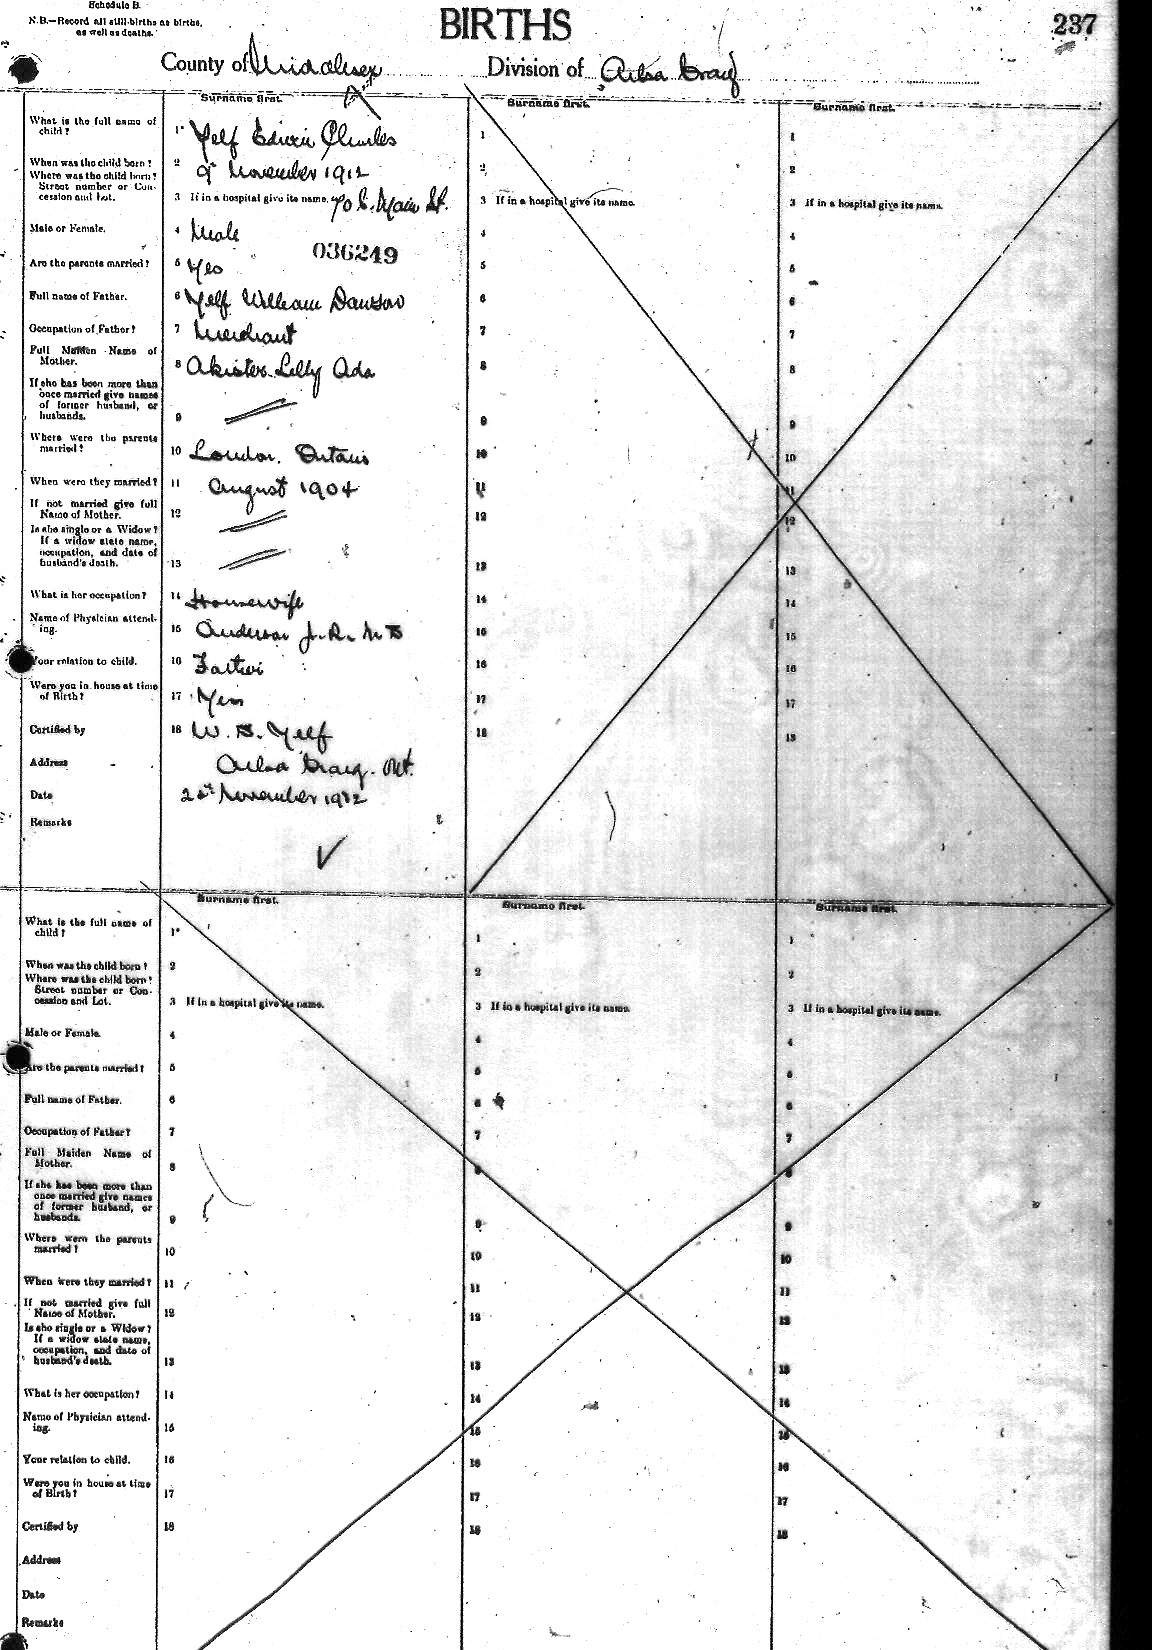 Schedule B.
N.B.—Record all still-births as births,
as well as deaths.
BIRTHS
237
County of Middlesex
Division of Ailsa Craig
Surname first.
Surname first.
Surname first.
What is the full name of
child?
1 Yelf Edwin Charles
1
1
When was the child born?
2 9th November 1912
2
2
Where was the child born?
Street number or Con-
cession and Lot.
3 If in a hospital give its name. Main St.
3 If in a hospital give its name.
3 If in a hospital give its name.
Male or Female.
4 Male
4
4
036249
Are the parents married?
5 Yes
5
5
Full name of Father.
6 Yelf William Dawson
6
6
Occupation of Father?
7 Merchant
7
7
Full Maiden Name of
Mother.
8 Akister Lilly Ada
8
8
If she has been more than
once married give names
of former husband, or
husbands.
9
9
9
Where were the parents
married?
10 London. Ontario
10
10
When were they married?
11 August 1904
11
11
If not married give full
Name of Mother.
12
12
12
Is she single or a Widow?
If a widow state name,
occupation, and date of
husband's death.
13
13
13
What is her occupation?
14 Housewife
14
14
Name of Physician attend-
ing.
15 Anderson J. R. M B
15
15
Your relation to child.
16 Father
16
16
Were you in house at time
of Birth?
17 Yes
17
17
Certified by
18 W. D. Yelf
18
18
Address
Ailsa Craig. Ont.
Date
November 1912
Remarks
Surname first.
Surname first.
Surname first.
What is the full name of
child?
1
1
1
When was the child born?
2
2
2
Where was the child born?
Street number or Con-
cession and Lot.
3 If in a hospital give its name.
3 If in a hospital give its name.
3 If in a hospital give its name.
Male or Female.
4
4
4
Are the parents married?
5
5
5
Full name of Father.
6
6
6
Occupation of Father?
7
7
7
Full Maiden Name of
Mother.
8
8
8
If she has been more than
once married give names
of former husband, or
husbands.
9
9
9
Where were the parents
married?
10
10
10
When were they married?
11
11
11
If not married give full
Name of Mother.
12
12
12
Is she single or a Widow?
If a widow state name,
occupation, and date of
husband's death.
13
13
13
What is her occupation?
14
14
14
Name of Physician attend-
ing.
15
15
15
Your relation to child.
16
16
16
Were you in house at time
of Birth?
17
17
17
Certified by
18
18
18
Address
Date
Remarks